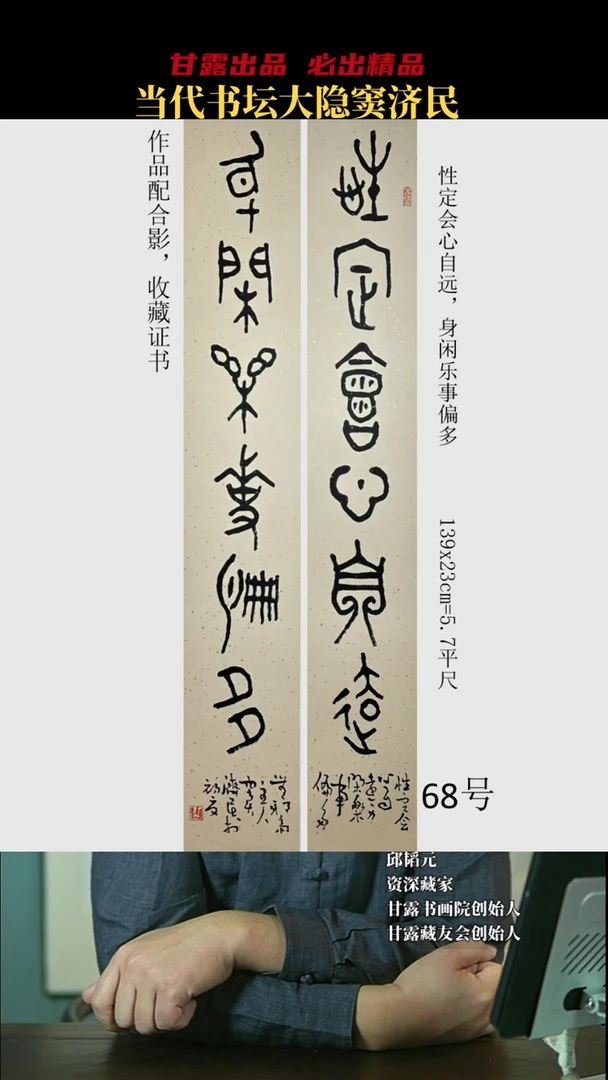 甘露出品 必出精品
当代书坛大隐窦济民
作品配合影，收藏证书
性定会心自远，身闲乐事偏多
139x23cm=5.7平尺
性定會心自遠
身閑樂事偏多
68号
邱韬元
资深藏家
甘露书画院创始人
甘露藏友会创始人